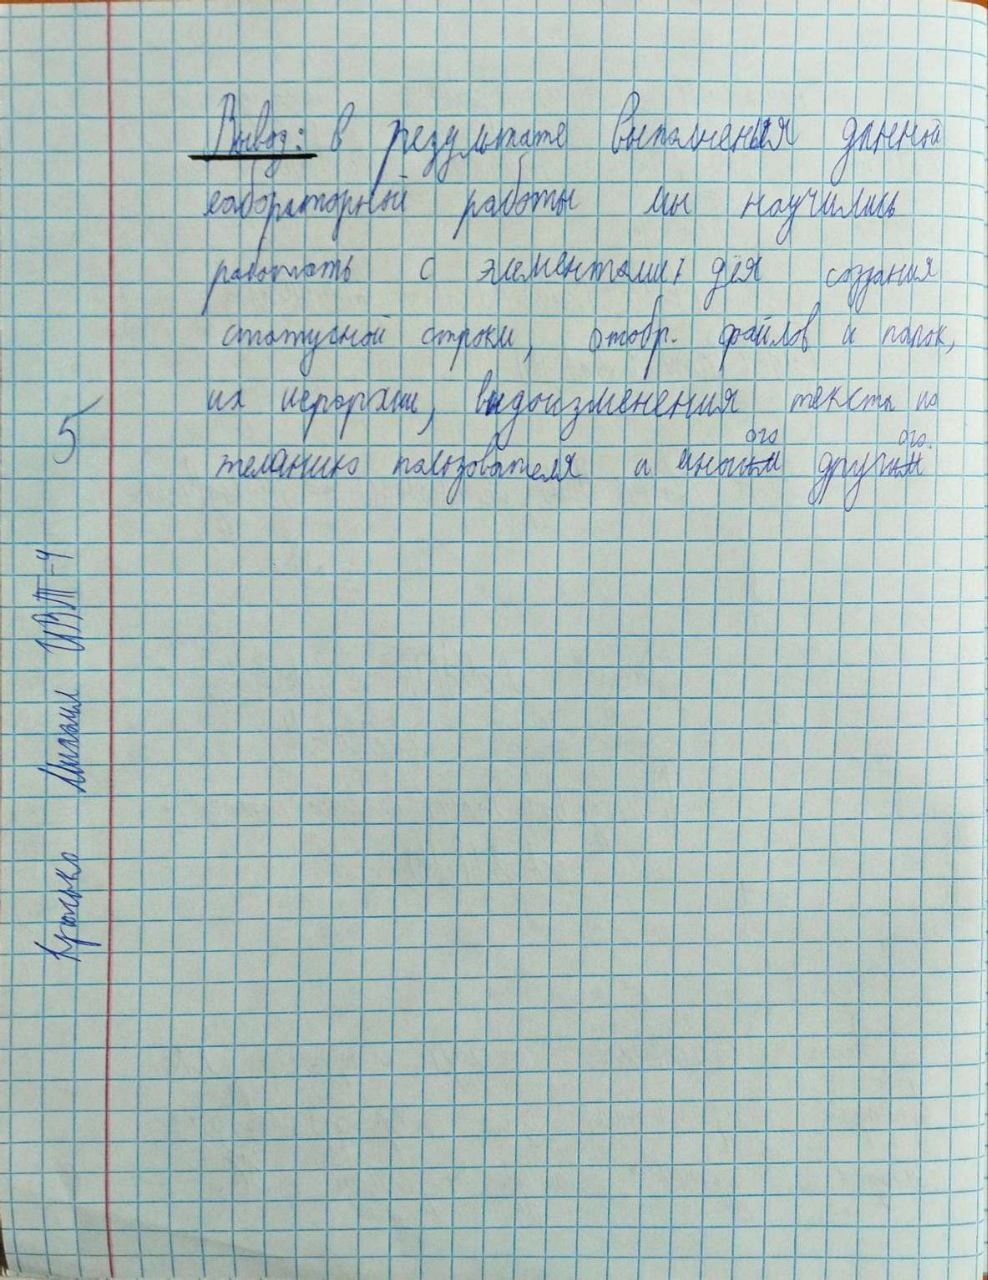 Вывод: в результате выполнения данной
лабораторной работы мы научились
работать с элементами для создания
статусной строки, отобр. файлов и папок,
их иерархии, видоизменения текста по
желанию пользователя и многого другого.
5
Михаил ИВТ-4